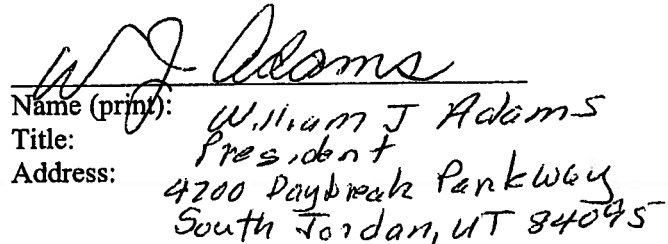 W J Adams
Name (print): William J Adams
Title: President
Address: 4700 Daybreak Parkway
South Jordan, UT 84095